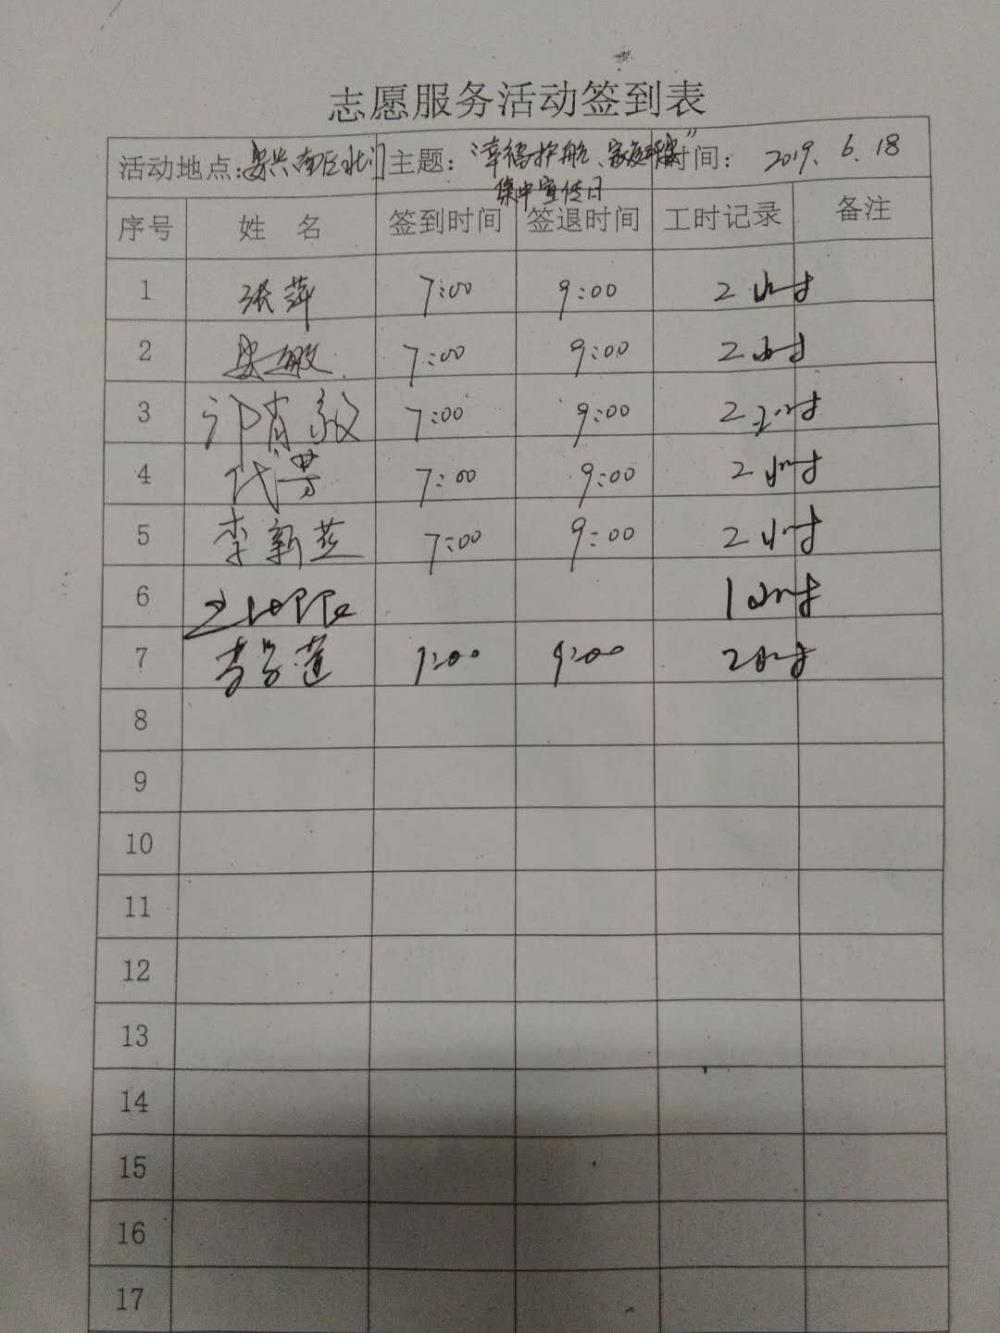 志愿服务活动签到表
活动地点: 兴南区北门 主题: "幸福护航、家庭 " 时间: 2019.6.18
集中宣传日
序号 姓 名 签到时间 签退时间 工时记录 备注
1 张萍 7:00 9:00 2小时
2 敏 7:00 9:00 2小时
3 7:00 9:00 2小时
4 代芳 7:00 9:00 2小时
5 李新燕 7:00 9:00 2小时
6 1小时
7 李 莲 7:00 9:00 2小时
8
9
10
11
12
13
14
15
16
17